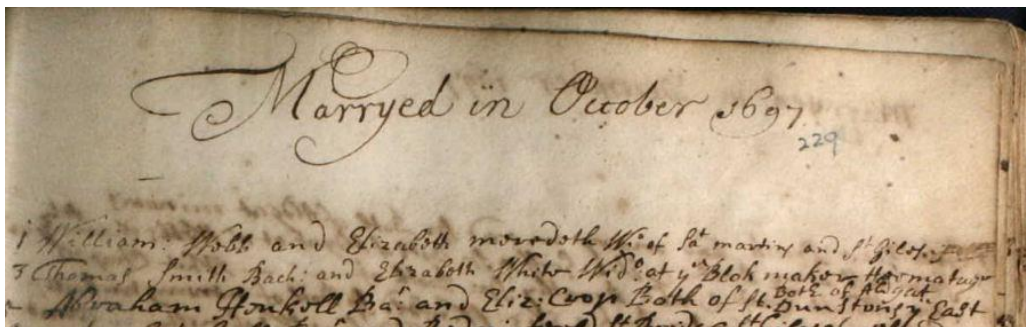 Marryed in October 1697
229
1 William: Webb and Elizabeth meredeth Wi.o of St martins and St Giles:
3 Thomas Smith Bach: and Elizabeth White Wid.o at ye Blok maker
Both of Aldgat
Abraham Bar and Eliz: Coop Both of St: Dunstons ye East